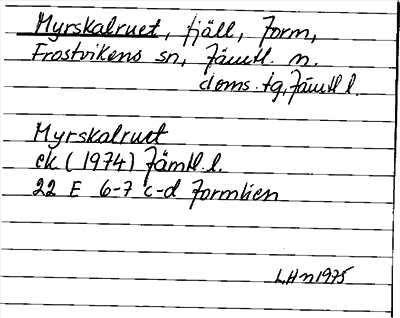 Myrskalruet, fjäll, Form,
Frostvikens sn, Jämtl. n.
doms. tg, Jämtl l.
Myrskalruet
ek (1974) Jämtl. l.
22 E 6-7 c-d Formlien
LHn 1975